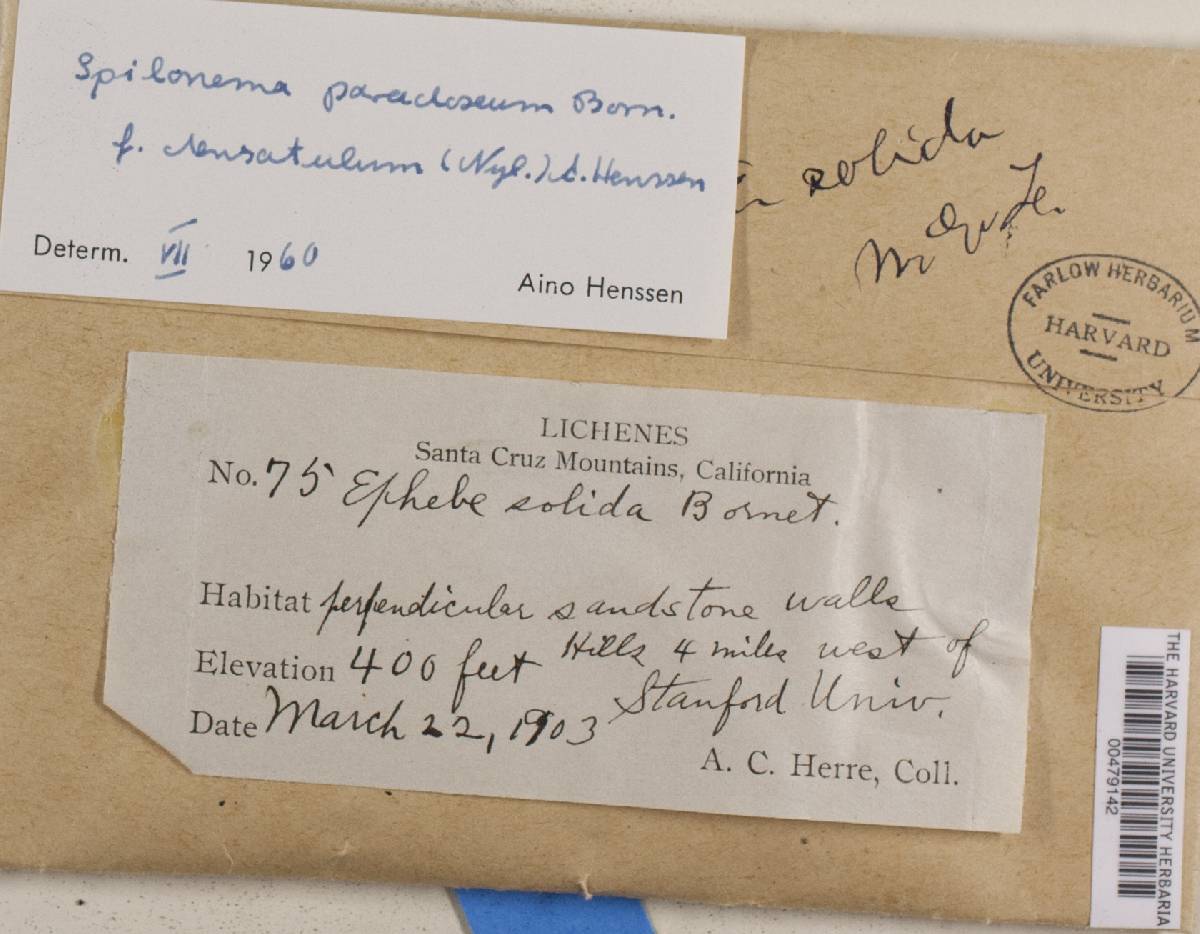 Spilonema paradoxum Born.
f. densatulum (Nyl.) A. Henssen
Determ. VII 1960
Aino Henssen
solida
FARLOW HERBARIUM
HARVARD
UNIVERSITY
LICHENES
Santa Cruz Mountains, California
No. 75 Ephebe solida Bornet.
Habitat perpendicular sandstone walls
Elevation 400 feet Hills 4 miles west of
Stanford Univ.
Date March 22, 1903
A. C. Herre, Coll.
THE HARVARD UNIVERSITY HERBARIA
00479142